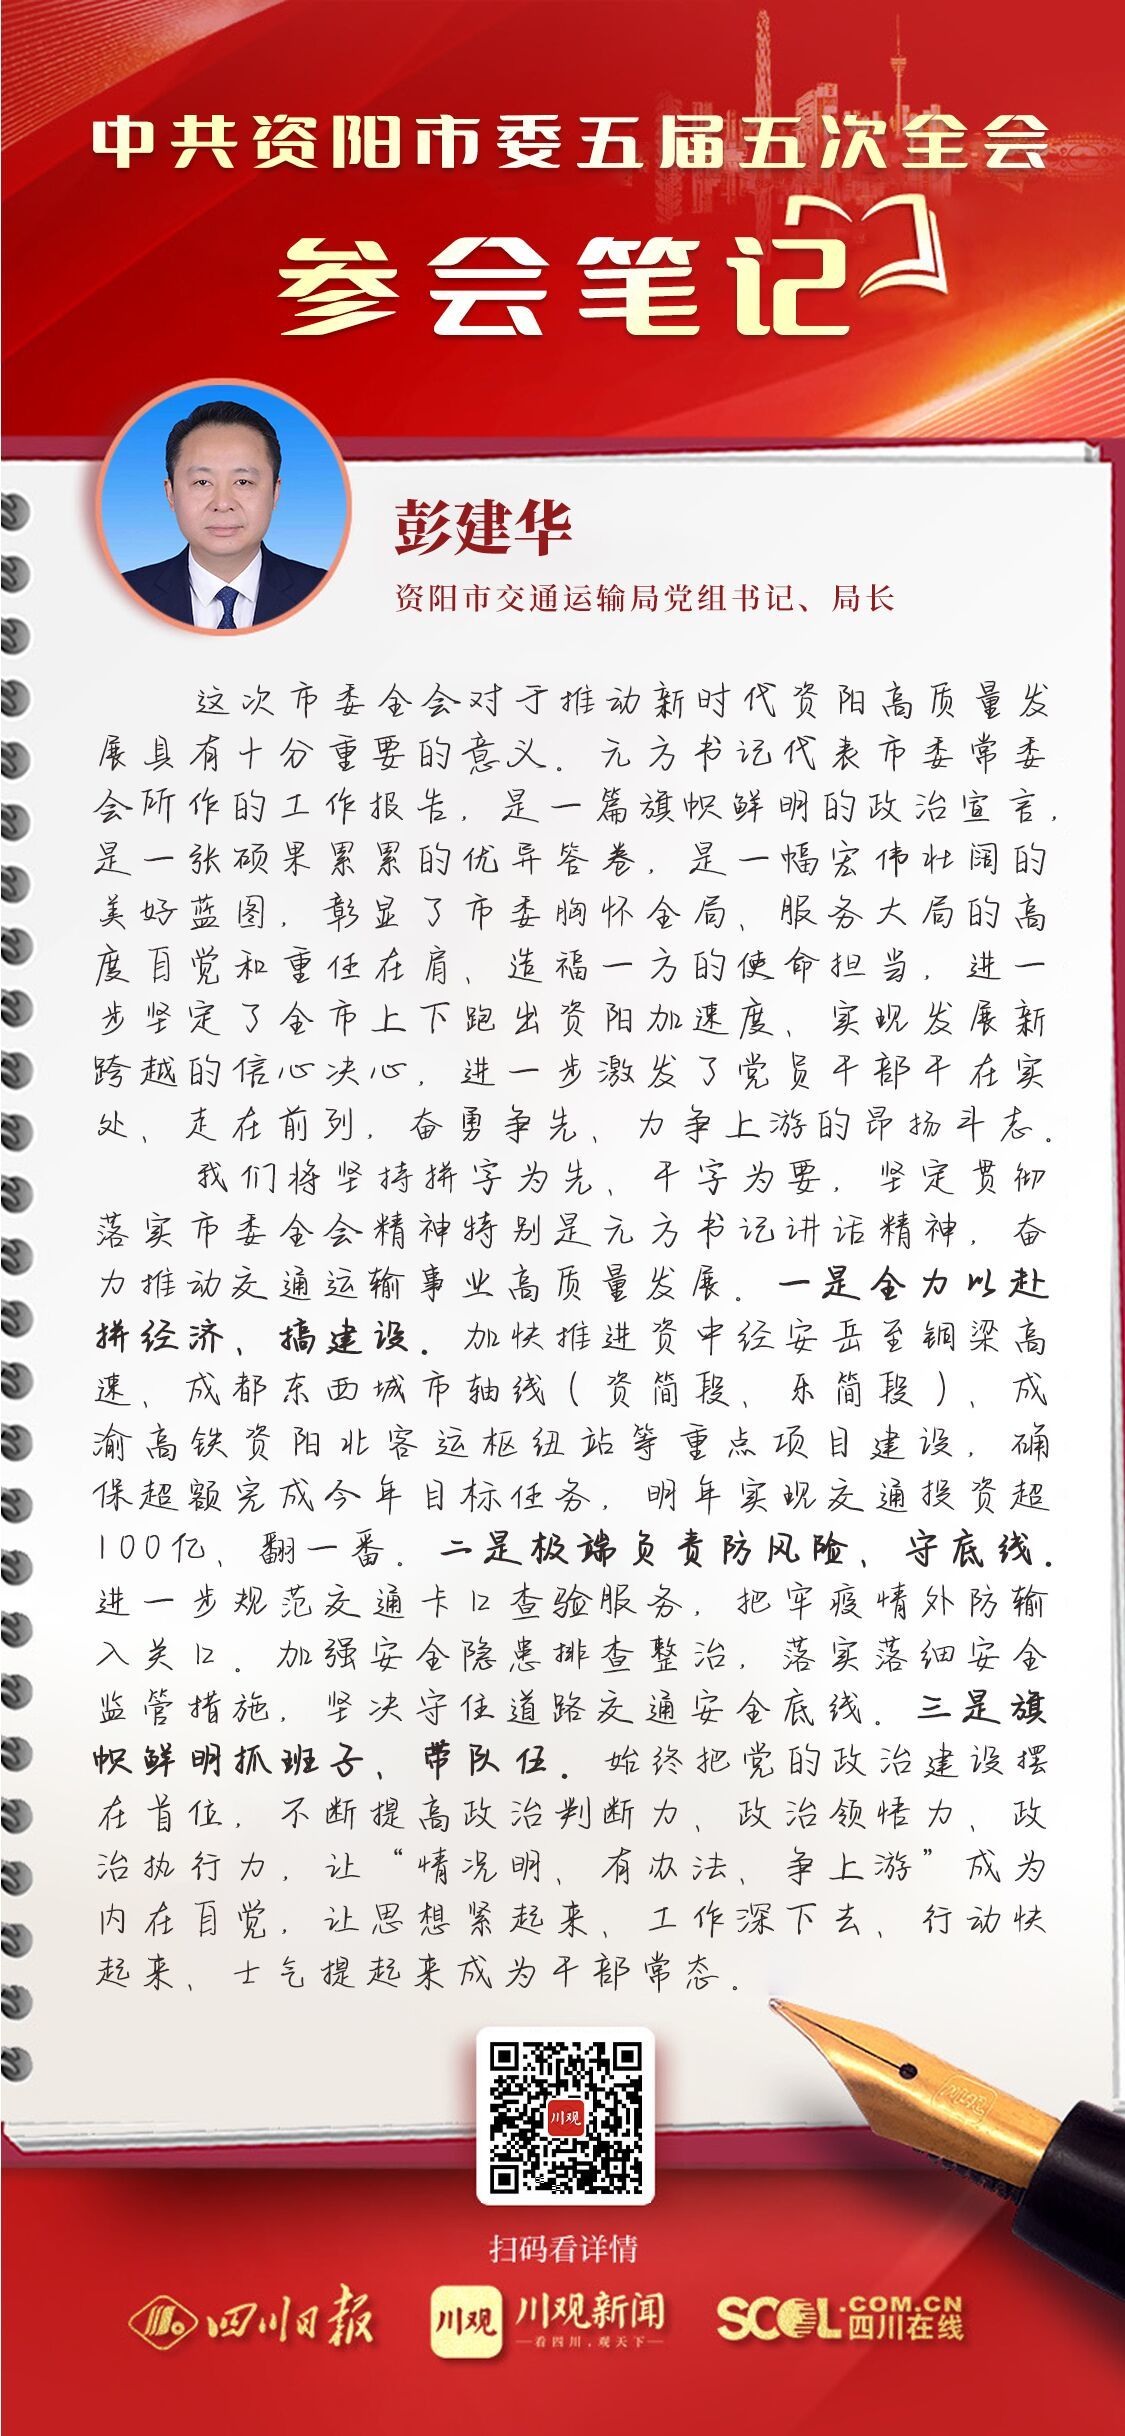 中共资阳市委五届五次全会
参会笔记
彭建华
资阳市交通运输局党组书记、局长
这次市委全会对于推动新时代资阳高质量发
展具有十分重要的意义。元方书记代表市委常委
会所作的工作报告，是一篇旗帜鲜明的政治宣言，
是一张硕果累累的优异答卷，是一幅宏伟壮阔的
美好蓝图，彰显了市委胸怀全局、服务大局的高
度自觉和重任在肩、造福一方的使命担当，进一
步坚定了全市上下跑出资阳加速度、实现发展新
跨越的信心决心，进一步激发了党员干部干在实
处、走在前列，奋勇争先、力争上游的昂扬斗志。
我们将坚持拼字为先、干字为要，坚定贯彻
落实市委全会精神特别是元方书记讲话精神，奋
力推动交通运输事业高质量发展。一是全力以赴
拼经济、搞建设。加快推进资中经安岳至铜梁高
速、成都东西城市轴线（资简段、乐简段）、成
渝高铁资阳北客运枢纽站等重点项目建设，确
保超额完成今年目标任务，明年实现交通投资超
100亿、翻一番。二是极端负责防风险、守底线。
进一步规范交通卡口查验服务，把牢疫情外防输
入关口。加强安全隐患排查整治，落实落细安全
监管措施，坚决守住道路交通安全底线。三是旗
帜鲜明抓班子、带队伍。始终把党的政治建设摆
在首位，不断提高政治判断力、政治领悟力、政
治执行力，让“情况明、有办法、争上游”成为
内在自觉，让思想紧起来、工作深下去、行动快
起来、士气提起来成为干部常态。
川观
扫码看详情
四川日报
川观
川观新闻
看四川，观天下
SCOL.COM.CN
四川在线